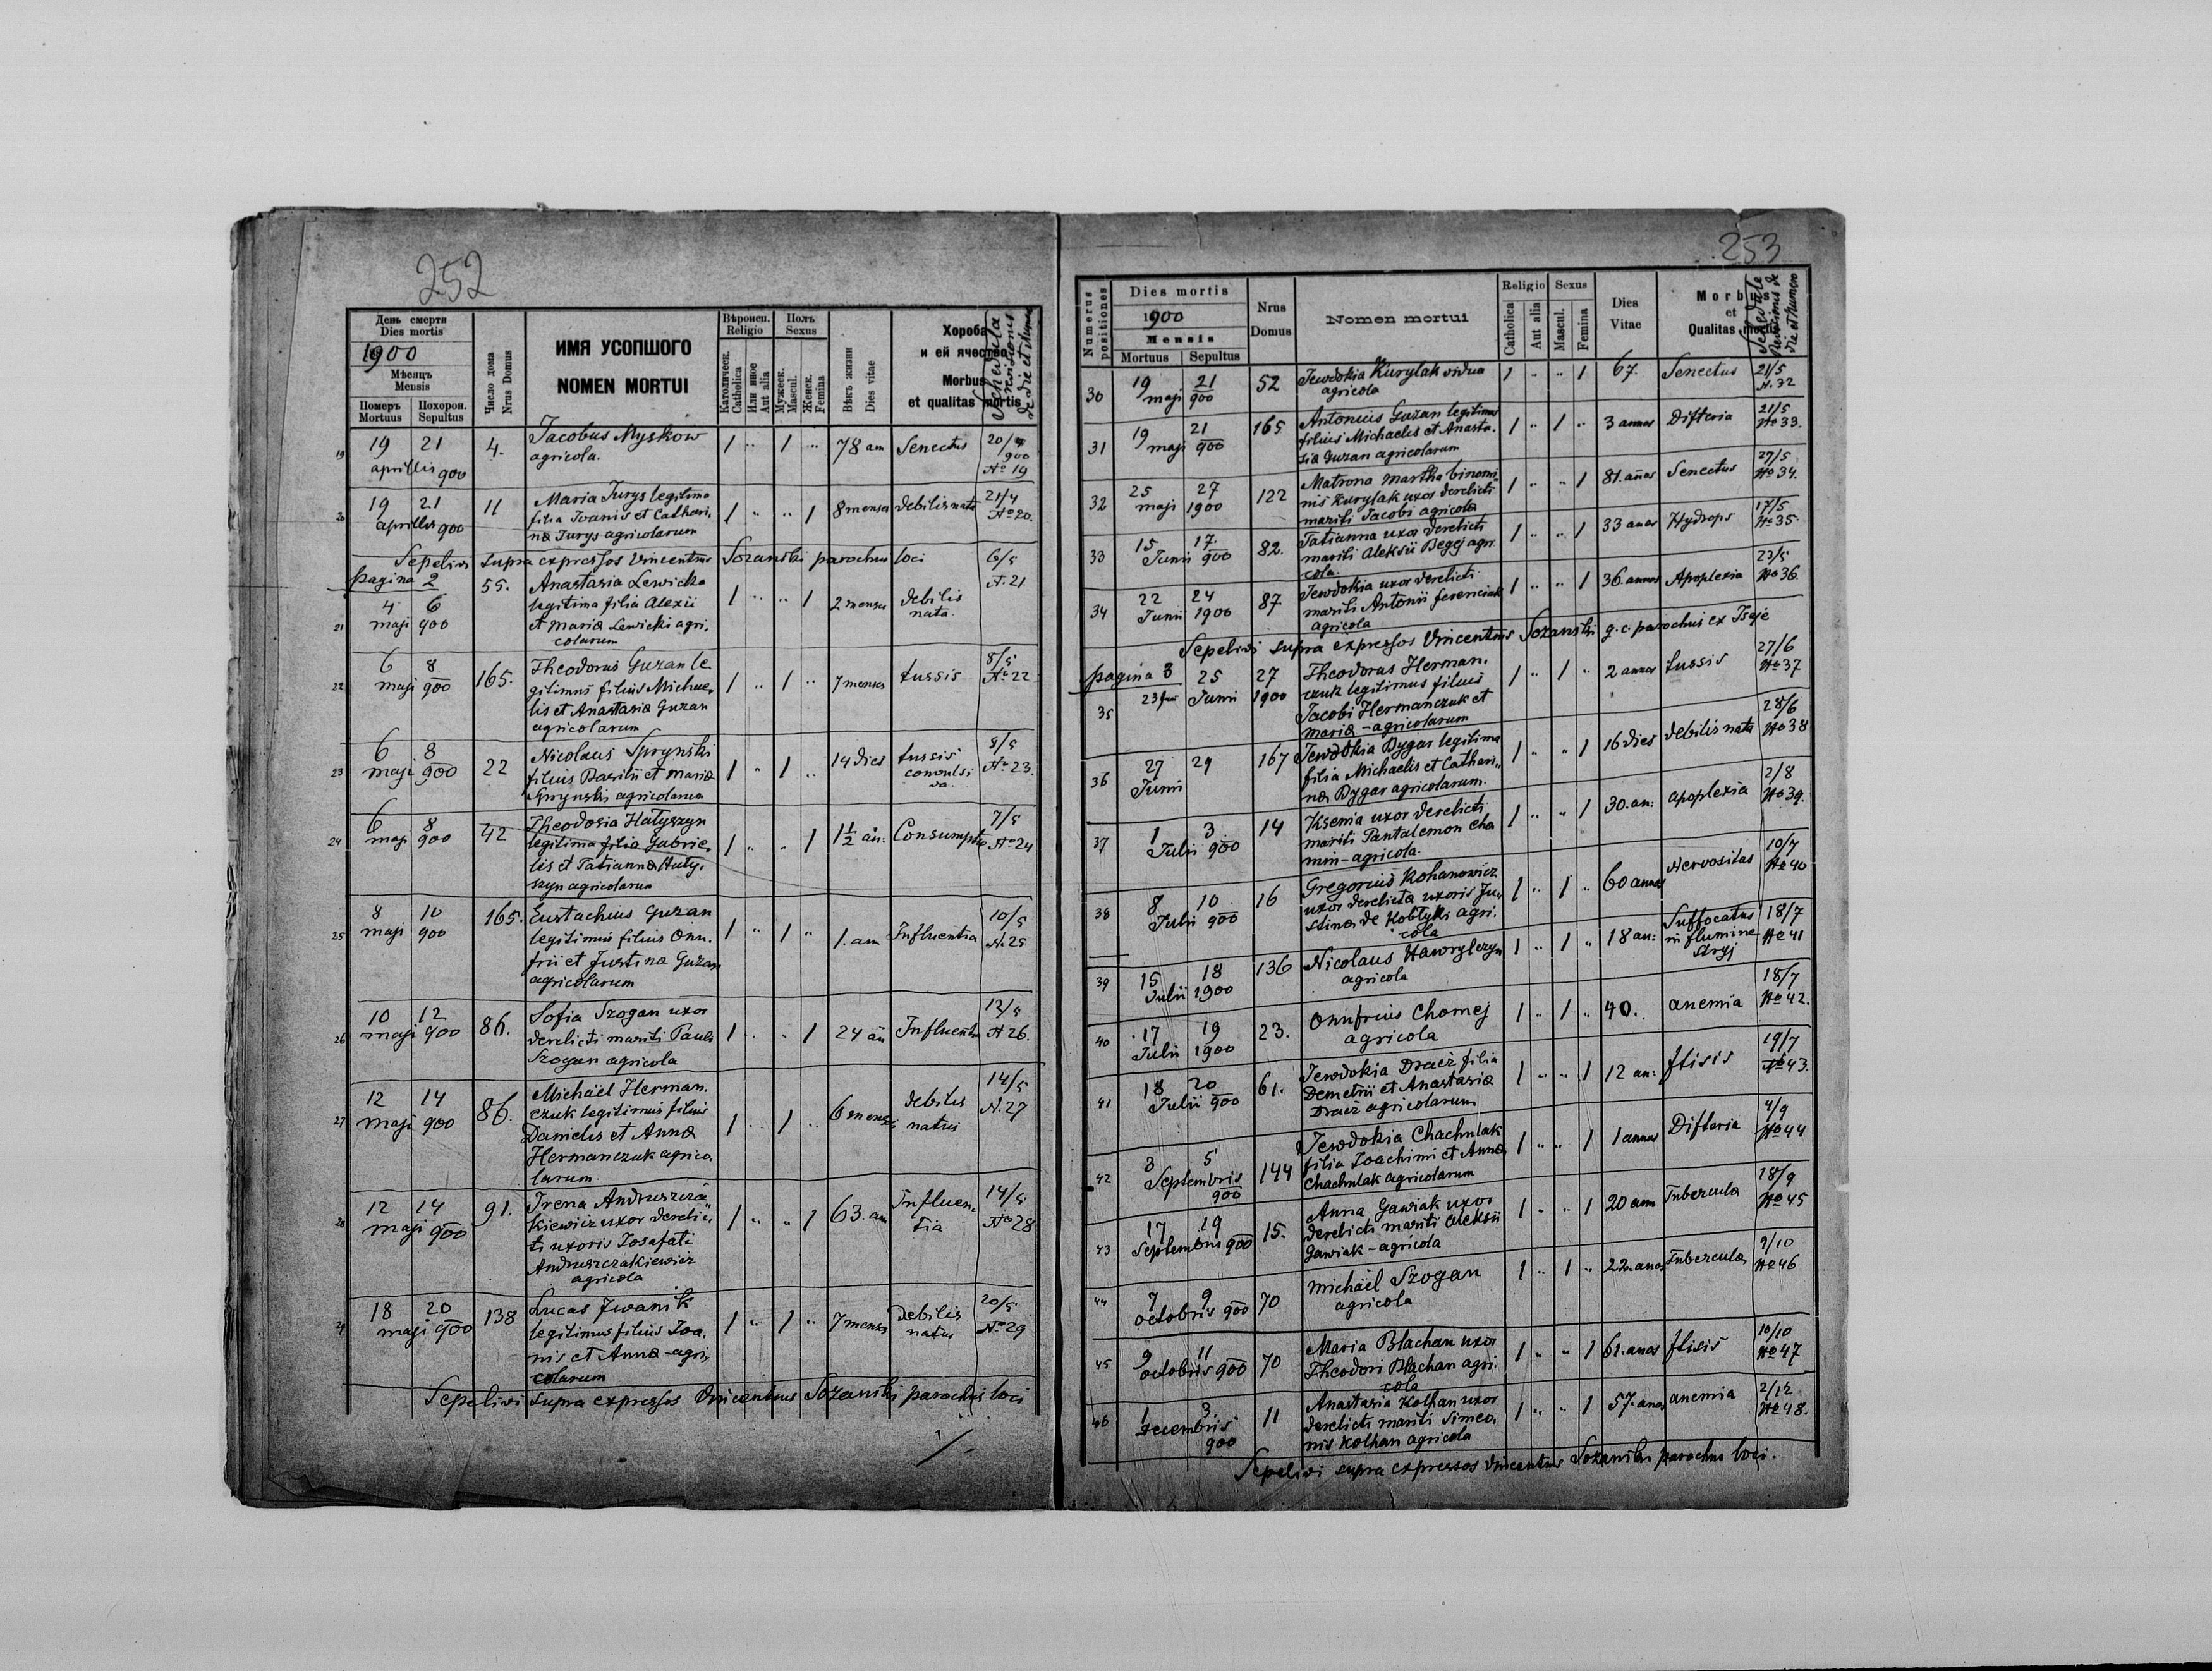 252
День смерти
Dies mortis
1900
Мѣсяцъ
Mensis
Померъ Похорон.
Mortuus Sepultus
Число дома
Nrus Domus
ИМЯ УСОПШОГО
NOMEN MORTUI
Вѣроисп.
Religio
Католическ.
Catholica
Или иное
Aut alia
Полъ
Sexus
Мужеск.
Mascul.
Женск.
Femina
Вѣкъ жизни
Dies vitae
Хороба
и ей ячество
Morbus
et qualitas mortis
Schedula
revisionis
de die et numero
19 19 21 4. Jacobus Myskow 1 " 1 " 78 an Senectus 20/4
aprillis 900 agricola. 900
No 19
20 19 21 11 Maria Jurys legitima 1 " " 1 8 menses debilis nata 21/4
aprillis 900 filia Ioanis et Cathari, No 20.
na Jurys agricolarum
Sepelivi supra expressos Vincentius Sozanski parochus loci
pagina 2
21 4 6 55. Anastasia Lewicka 1 " " 1 2 menses debilis 6/5
maji 900 legitima filia Alexii nata. N. 21
et Maria Lewicki agri,
colarum
22 6 8 165. Theodorus Guzan le 1 " 1 " 7 menses tussis 8/5
maji 900 gitimus filius Michae, No 22
lis et Anastasia Guzan
agricolarum
23 6 8 22 Nicolaus Sprynski 1 " 1 " 14 dies tussis 8/5
maji 900 filius Basilii et Maria convulsi No 23.
Sprynski agricolarum va.
24 6 8 42 Theodosia Hatyszyn 1 " " 1 1½ an: Consumptio 7/5
maji 900 legitima filia Gabrie, No 24
lis et Tatianna Haty,
szyn agricolarum
25 8 10 165. Eustachius Guzan 1 " 1 " 1. ann Influentia 10/5
maji 900 legitimus filius Onu. N. 25
frii et Justina Guzan
agricolarum
26 10 12 86. Sofia Szogan uxor 1 " " 1 24 an Influentia 12/5
maji 900 derelicti mariti Pauli N 26.
Szogan agricola
27 12 14 86. Michaël Herman. 1 " 1 " 6 menses debilis 14/5
maji 900 czuk legitimus filius natus N. 27
Danielis et Anna
Hermanczuk agrico,
larum.
28 12 14 91. Irena Andruszcza 1 " " 1 63. an Influen, 14/5
maji 900 kiewicz uxor derelic, tia No 28
ti uxoris Iosafati
Andruszczakiewicz
agricola
29 18 20 138 Lucas Iwanik 1 " 1 " 7 menses debilis 20/5
maji 900 legitimus filius Ioa, natus No 29
nis et Anna - agri,
colarum
Sepelivi supra expressos Vincentius Sozanski parochus loci
253
Numerus
positiones
Dies mortis
1900
Mensis
Mortuus Sepultus
Nrus
Domus
Nomen mortui
Religio
Catholica
Aut alia
Sexus
Mascul.
Femina
Dies
Vitae
Morbus
et
Qualitas mortis
Schedule
Revisionis de
die et Numero
30 19 21 52 Jewdokia Kurylak vidua 1 " " 1 67. Senectus 21/5
maji 900 agricola N. 32
31 19 21 165 Antonius Guzan legitimus 1 " 1 " 3 annos Difteria 21/5
maji 900 filius Michaelis et Anasta. No 33.
sia Guzan agricolarum
32 25 27 122 Matrona Martha binomi 1 " " 1 81. años Senectus 27/5
maji 1900 nis Kurylak uxor derelicti No 34.
mariti Jacobi agricola
33 15 17. 82. Tatianna uxor derelicti 1 " " 1 33 anos Hydrops 17/5
Junii 900 mariti Aleksii Begej agri No 35.
cola.
34 22 24 87 Jewdokia uxor derelicti 1 " " 1 36. annos Apoplexia 23/5
Junii 1900 mariti Antonii ferenciak No 36.
agricola
Sepelivi supra expressos Vincentius Sozanski g. c. parochus ex Tseje
pagina 3
35 25 27 Theodorus Herman. 1 " 1 " 2 annos tussis 27/6
Junii 1900 czuk legitimus filius No 37
Jacobi Hermanczuk et
maria - agricolarum
36 27 29 167 Jewdokia Dygar legitima 1 " " 1 16 dies debilis nata 28/6
Junii filia Michaelis et Cathari,, No 38
na Dygar agricolarum.
37 1 3 14 Ksenia uxor derelicti 1 " " 1 30. an: apoplexia 2/8
Julii 900 mariti Pantalemon Cha No 39.
min - agricola.
38 8 10 16 Gregorius Kohanowicz 1 " 1 " 60 annos Nervositas 10/7
Julii 900 uxor derelicta uxoris Ju,, No 40
stina de Koblyki agri.
cola
39 15 18 136 Nicolaus Hawrylczyn 1 " 1 " 18 an: Suffocatus 18/7
Julii 1900 agricola in flumine No 41
Stryj
40 17 19 23. Onufrius Chomej 1 " 1 " 40. anemia 18/7
Julii 1900 agricola No 42.
41 18 20 61. Jewdokia Dracz filia 1 " " 1 12 an: ftisis 19/7
Julii 900 Demetrii et Anastasia No 43.
Dracz agricolarum
42 3 5 144 Jewdokia Chachulak 1 " " 1 1 annus Difteria 4/9
Septembris filia Joachimi et Anna No 44
900 Chachulak agricolarum
43 17 19 15. Anna Gawiak uxor 1 " " 1 20 ann Tubercula 18/9
Septembris 900 derelicti mariti Aleksii No 45
Gawiak - agricola
44 7 9 70 Michaël Szogan 1 " 1 " 22. anos Tubercula 9/10
octobris 900 agricola No 46
45 9 11 70 Maria Blachan uxor 1 " " 1 61. anos ftisis 10/10
octobris 900 Theodori Blachan agri. No 47
cola
46 1 3 11 Anastasia Kolhan uxor 1 " " 1 57. anos anemia 2/12
decembris derelicti mariti Simeo, No 48.
900 nis Kolhan agricola
Sepelivi supra expressos Vincentius Sozanski parochus loci.